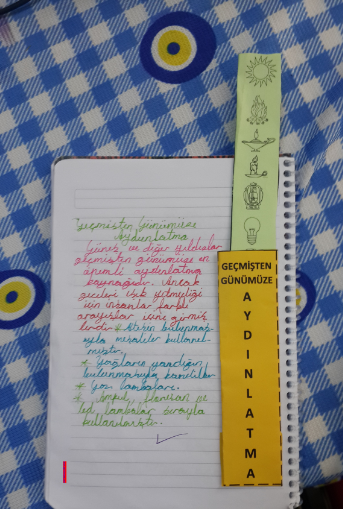 Geçmişten Günümüze
Aydınlatma
Güneş ve diğer yıldızlar
geçmişten günümüze en
önemli aydınlatma
kaynağıdır. Ancak
geceleri ışık yetmediği
için insanlar farklı
arayışlar içine girmiş
lerdir. * Ateşin bulunması
ıyla meşaleler kullanıl
mıştır.
* Yağların yandığın
bulunmasıyla kandiller
* Gaz lambaları.
* Ampul, floresan ve
led lambalar sırayla
kullanılmıştır.
GEÇMİŞTEN
GÜNÜMÜZE
A
Y
D
I
N
L
A
T
M
A